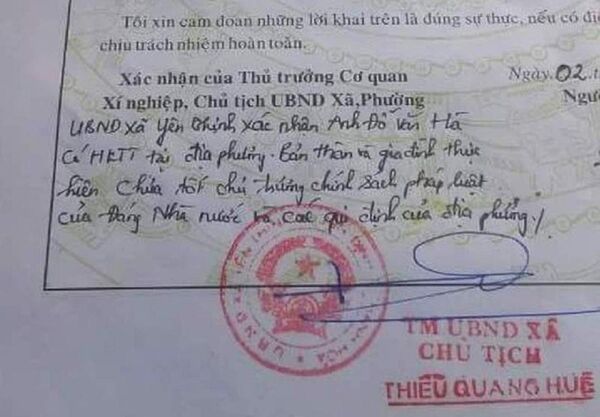 Tôi xin cam đoan những lời khai trên là đúng sự thực, nếu có
chịu trách nhiệm hoàn toàn.
Xác nhận của Thủ trưởng Cơ quan
Ngày 02
Xí nghiệp, Chủ tịch UBND Xã,Phường
UBND xã Yên Thịnh xác nhân Anh Đỗ Văn Hà
Có HKTT tại địa phương. Bản thân và gia đình thực
hiện Chưa tốt chủ trương chính sách pháp luật
của Đảng Nhà nước và các qui định của địa phương./
TM UBND XÃ
CHỦ TỊCH
THIỀU QUANG HUẾ